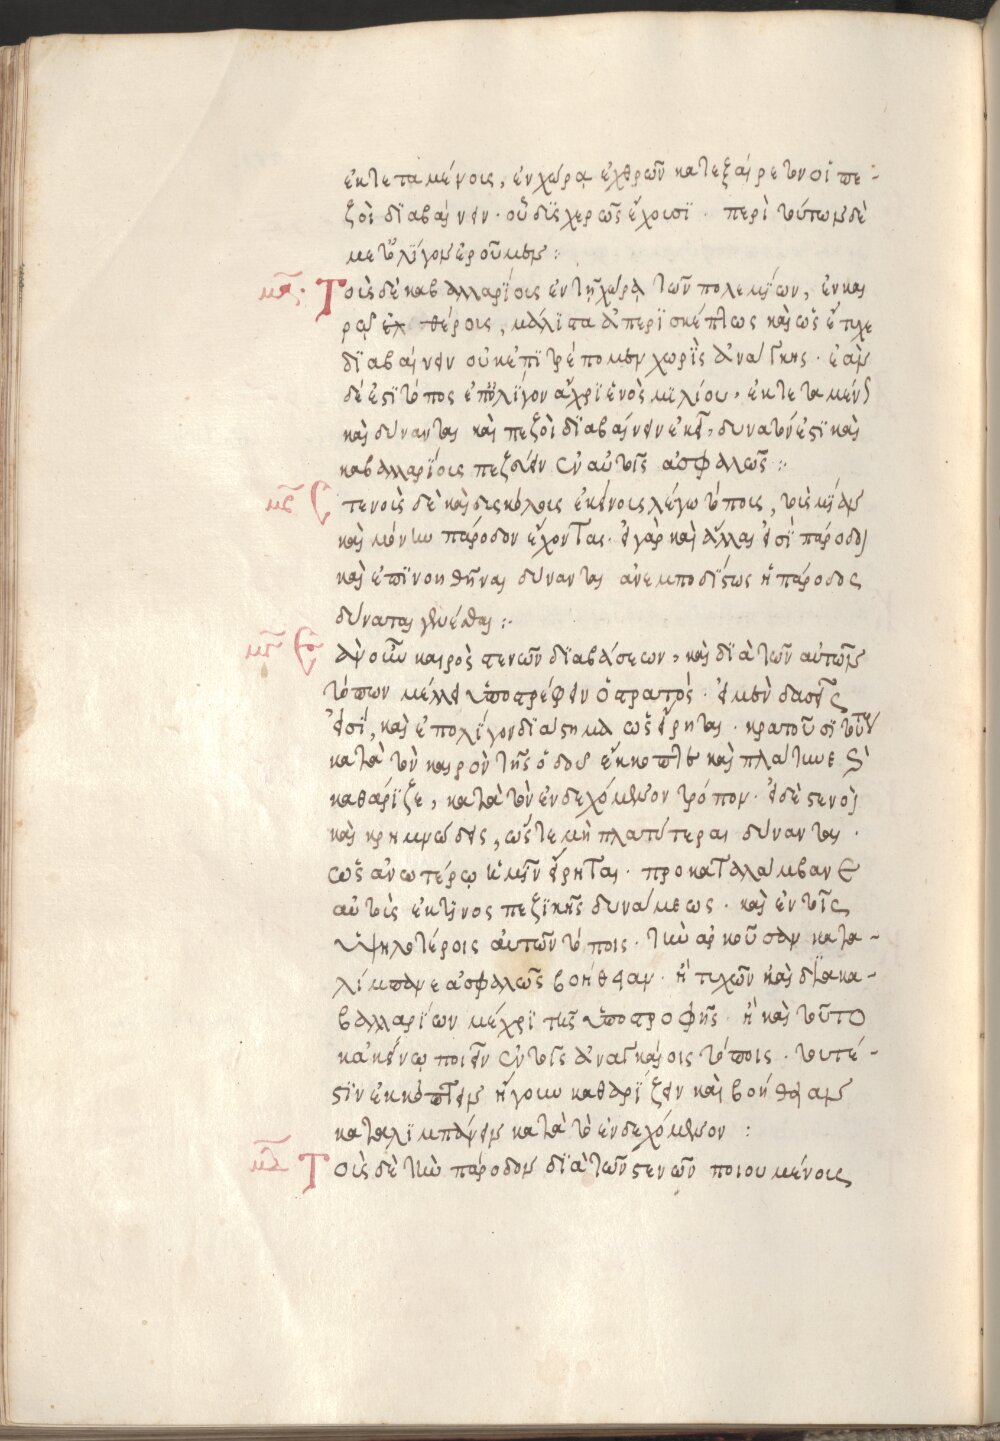 ἐκτεταμένοις, ἐν χώρᾳ ἐχθρῶν κατεξαίρετον οἱ πε-
ζοὶ διαβαίνειν· οὐ δϊσχερῶς ἔχουσϊ· περὶ τούτων δὲ
μετ᾽ ὀλίγον ἐροῦμεν:
μα· Τοῖς δὲ καβαλλαρίοις ἐν τῇ χώρᾳ τῶν πολεμίων, ἐν και
ρῷ θέροις, μάλιστα ἀπερισκέπτως καὶ ὡς ἔτυχε
διαβαίνειν οὐκ ἐπιτρέπομεν χωρὶς ἀνάγκης· ἐὰν
δέ ἐστι τόπος ἐπ᾽ ὀλίγον ἄχρι ἑνὸς μιλίου, ἐκτεταμένος
καὶ δύνανται καὶ πεζοὶ διαβαίνειν ἐκεῖ, δυνατόν ἐστι καὶ
καβαλλαρίοις πεζεύειν σὺν αὐτοῖς ἀσφαλῶς:
μβ Στενοὺς δὲ καὶ δισκόλοις ἐκείνοις λέγω τόποις, τοὺς μίαν
καὶ μόνην πάροδον ἔχοντας· εἰ γὰρ καὶ ἄλλαι εἰσὶ πάροδοι
καὶ ἐπινοηθῆναι δύνανται ἀνεμποδίστως ἡ πάροδος
δύναται γενέσθαι:
μγ Ἐὰν οὖν καιρὸς στενῶν διαβάσεων, καὶ διὰ τῶν αὐτῶν
τόπων μέλλει ὑποστρέφειν ὁ στρατός· εἰ μὲν δασεῖς
εἰσί, καὶ ἐπ᾽ ὀλίγον διάστημα ὡς εἴρηται· κρατοῦσι τούτου
κατὰ τὸν καιρὸν τῆς ὁδοῦ ἔκκοπτε καὶ πλάτυνε καὶ
καθάριζε, κατὰ τὸν ἐνδεχόμενον τρόπον· εἰ δὲ στενοὶ
καὶ κρημνώδεις, ὥστε μὴ πλατύτεραι δύνανται·
ὡς ἀνωτέρω ἡμῖν εἴρηται· προκαταλάμβανε
αὐτοὺς ἐκ τινος πεζικῆς δυνάμεως· καὶ ἐν τοῖς
ὑψηλοτέροις αὐτῶν τόποις· τὴν ἀρκοῦσαν κατα-
λίμπανε ἀσφαλῶς βοήθειαν· ἢ τυχὸν καὶ διὰ κα-
βαλλαρίων μέχρι τῆς ὑποστροφῆς· ἢ καὶ τοῦτο
κἀκείνῳ ποιεῖν σὺν τοῖς ἀναγκαίοις τόποις· τουτέ-
στιν ἐκκόπτειν ἤγουν καθαρίζειν καὶ βοήθειαν
καταλιμπάνειν κατὰ τὸ ἐνδεχόμενον:
μδ Τοῖς δὲ τὴν πάροδον διὰ τῶν στενῶν ποιουμένοις